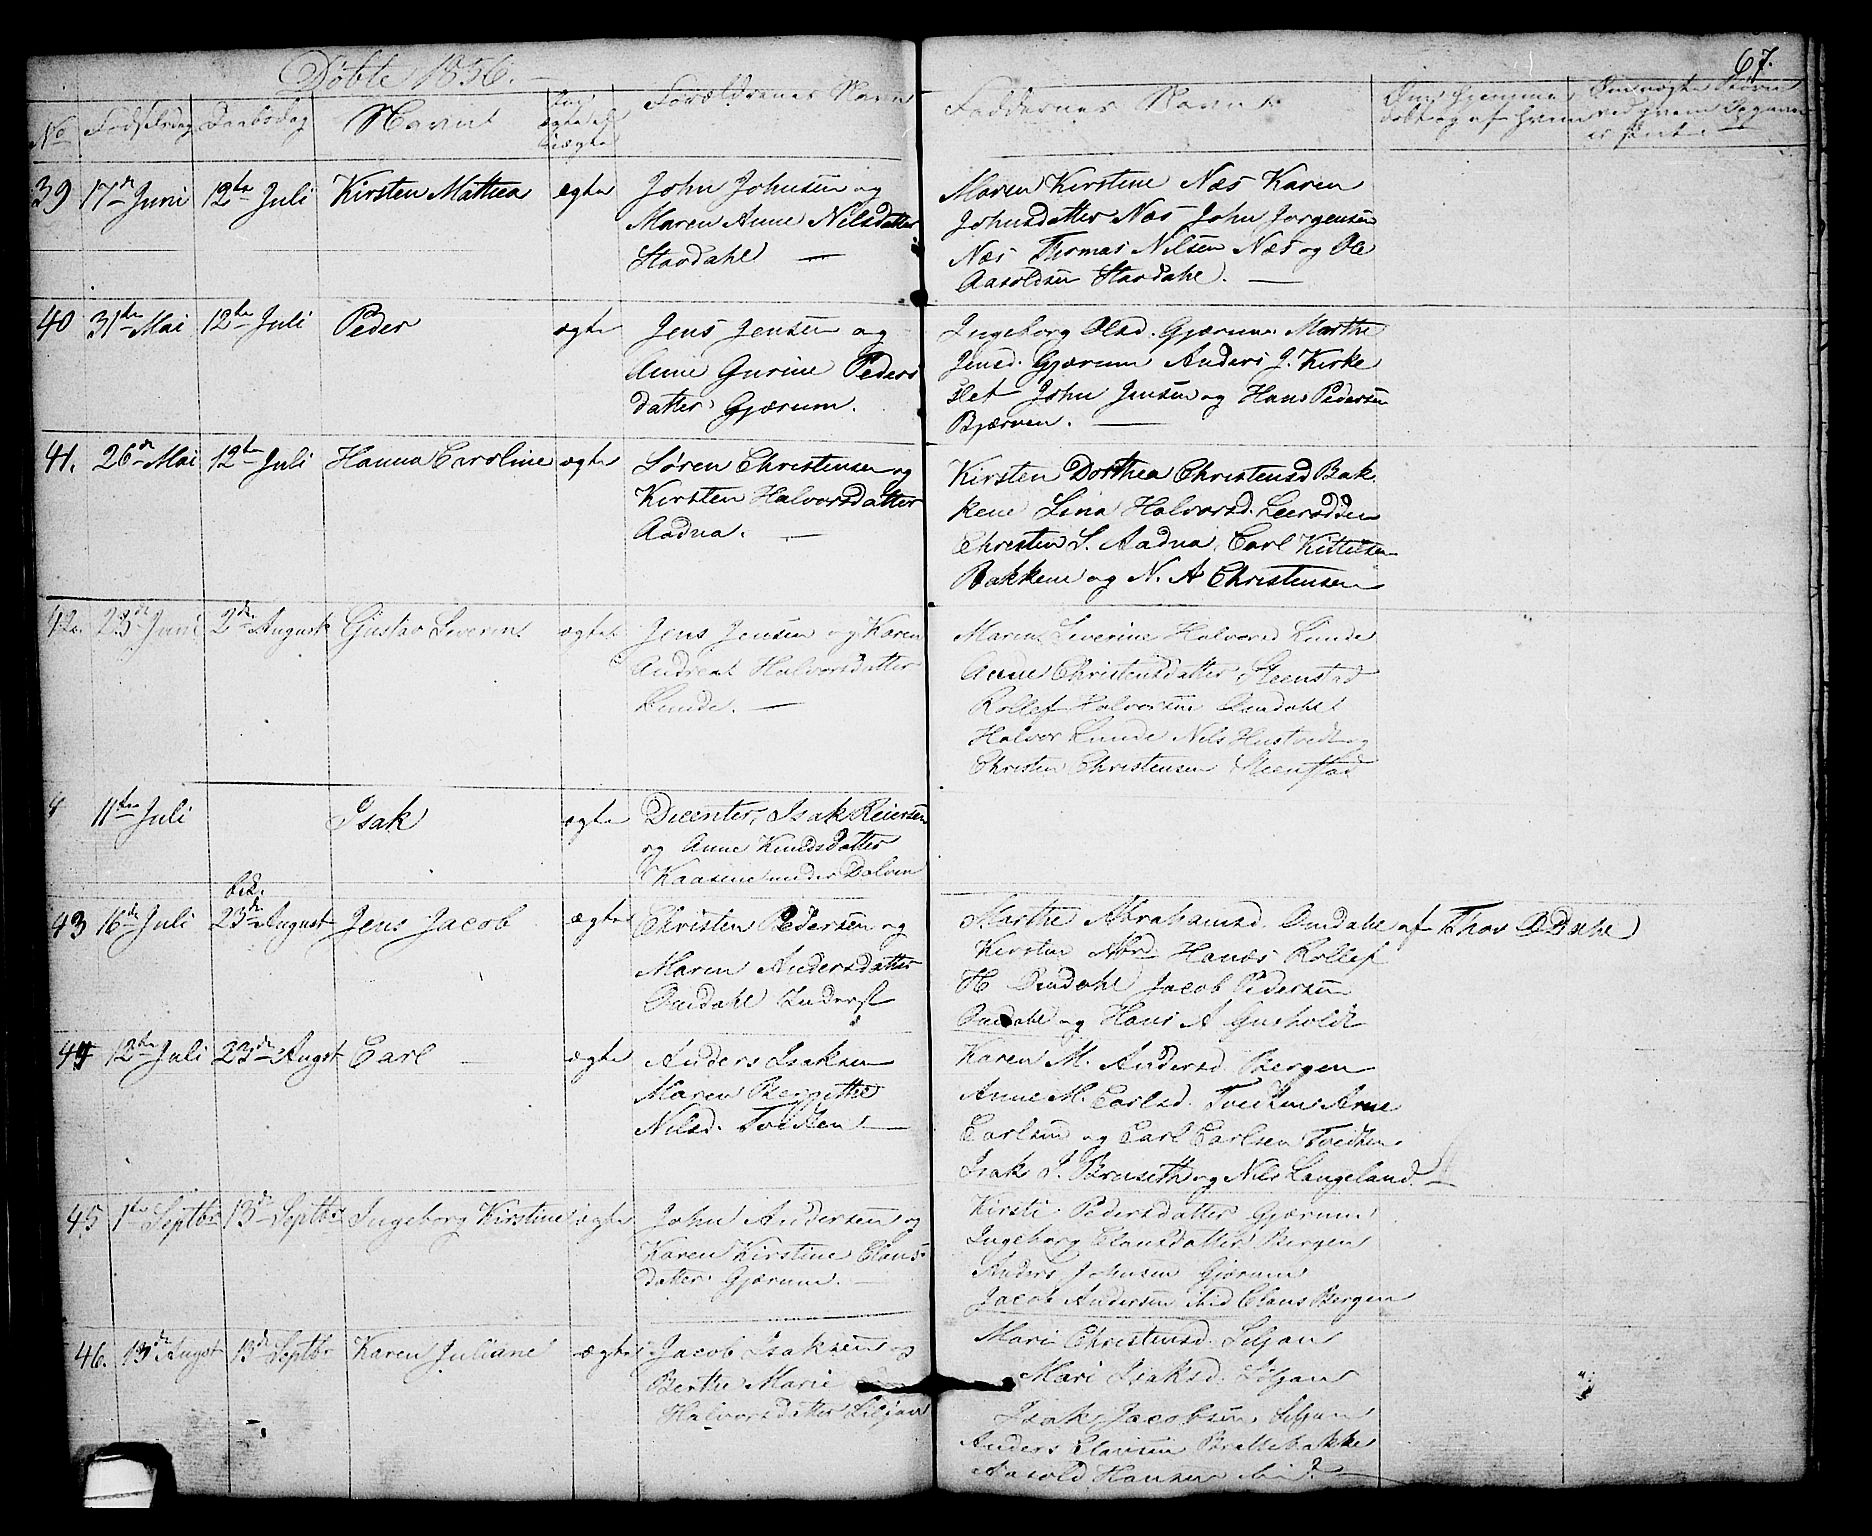 67.
Døbte 1856.
No Fødselsdag Daabsdag Navne ægte el uægte Forældrenes Navn Faddernes Navne Om hjemmedøbt og af hvem
39 17de Juni 12te Juli Kirsten Mathea ægte John Johnsen og
Maren Anne Nilsdatter
Stordahl
Maren Kirstine Næs Karen
Johnsdatter Næs John Jørgensen
Næs Thomas Nilsen Næs og Ole
Aaroldsen Stordahl.
40 31te Mai 12te Juli Peder ægte Jens Jensen og
Anne Gurine Peders
datter Gjærum.
Ingeborg Olsd. Gjærum Marthe
Jensd. Gjærum Anders J. Kirke
slet John Jensen og Hans Pedersen
Bjærven.
41. 26de Mai 12te Juli Hanna Caroline ægte Søren Christensen og
Kirsten Halvorsdatter
Aadna.
Kirsten Dorthea Christensd Bak
kene Lina Halvorsd.
Christen S. Aadna, Carl
Bakkene og N. A Christensen
42. 23de Juni 2de August Gustav Severin ægte Jens Jensen og Karen
Andrea Halvorsdatter
Lunde.
Maren Severine Halvorsd Lunde
Anne Christensdatter Steenstad
Rollef Halvorsen Omdahl
Halvor Lunde Nils Hustvedt og
Christen Christensen Steenstad
4 11te Juli Isak ægte Dicenter, Isak Reiersen
og Anne Knudsdatter
Kaasene under Dolven
43 16de Juli bek. 23de August Jens Jacob ægte Christen Pedersen og
Maren Andersdatter
Omdahl Inderst
Marthe Abrahamsd. Omdahl af Thov O Dahl
Kirsten Hanæs Rollef
H Omdahl Jacob Pedersen
Omdahl og Hans A Gusholdt
44 12te Juli 23de Augst Carl ægte Anders Isaksen
Maren Bergithe
Nilsd. Tvedten
Karen M. Andersd Bergen
Anne M. Carlsd. Tvedten Arne
Carlsen og Carl Carlsen Tvedten
Isak J. og Nils Langeland.
45 1te Septbr 13de Septbr Ingeborg Kirstine ægte John Andersen og
Karen Kirstine Claus
datter Gjærum.
Kirsti Pedersdatter Gjærum
Ingeborg Clausdatter Bergen
Anders Johnsen Gjærum
Jacob Andersen ibid Claus Bergen
46. 13de Augst 13de Septbr Karen Juliane ægte Jacob Isaksen og
Berthe Marie
Halvorsdatter Siljan
Mari Christensd. Siljan
Mari Isaksd. Siljan
Isak Jacobsen Siljan
Anders Clausen Brattebakke
Aarold Hansen ibid.